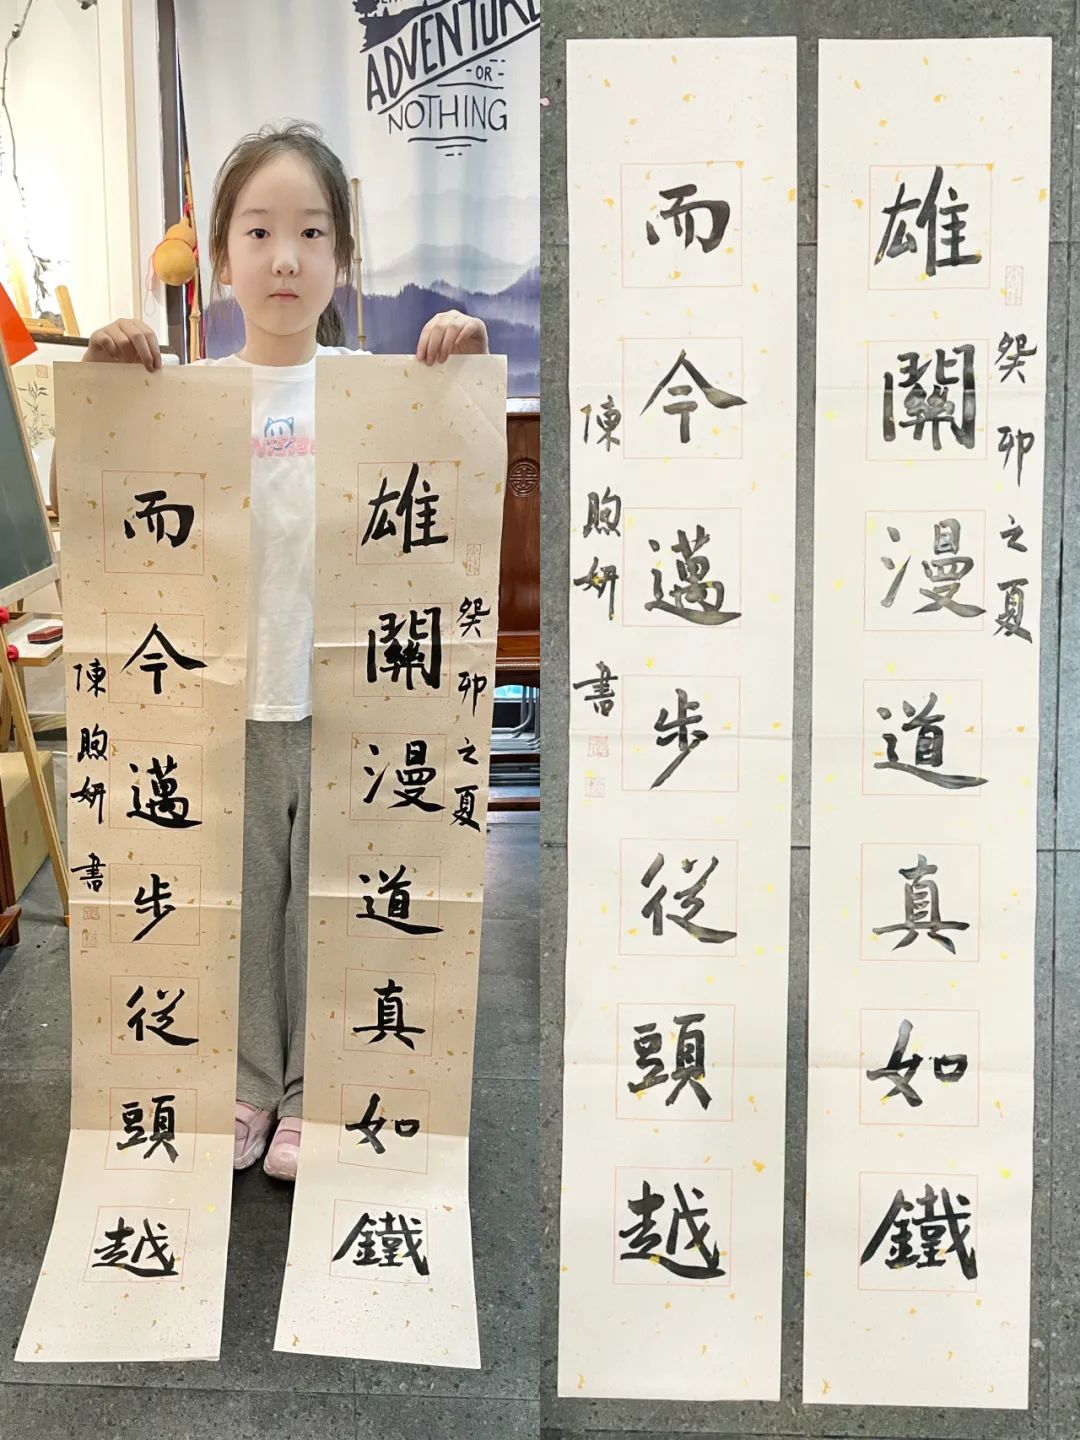 ADVENTURE
-OR-
NOTHING
雄關漫道真如鐵
癸卯之夏
而今邁步從頭越
陳煦妍書
雄關漫道真如鐵
癸卯之夏
而今邁步從頭越
陳煦妍書